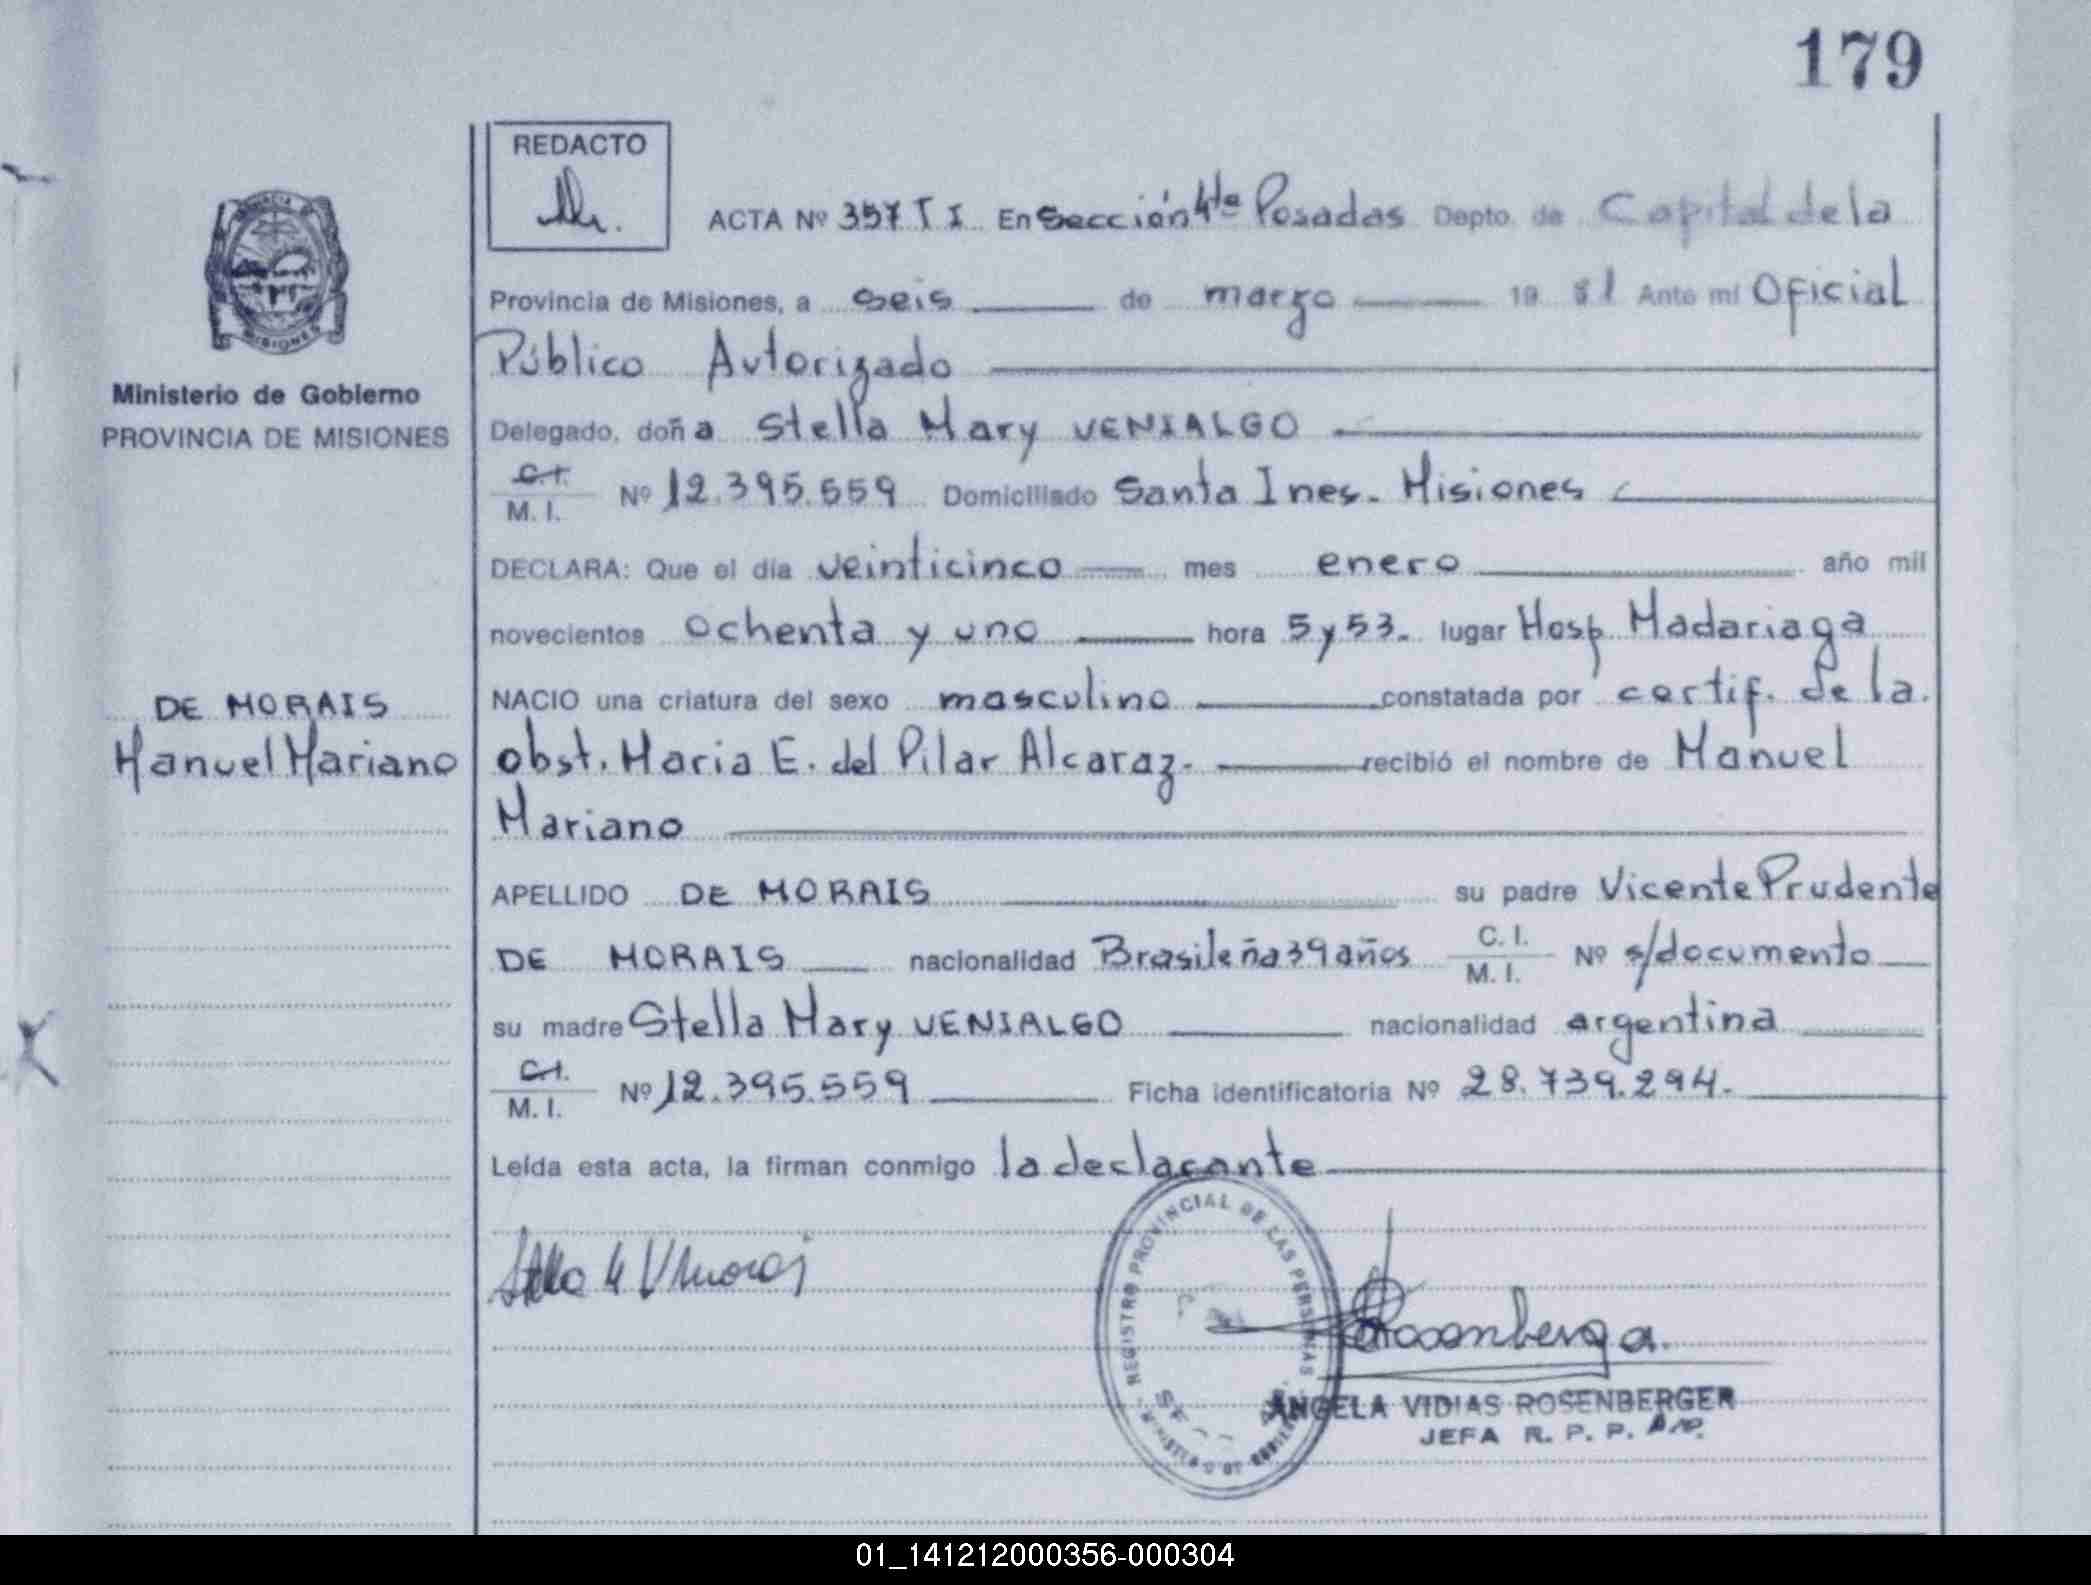 179
REDACTO
ACTA Nº 357 T I En Sección 4ta Posadas Depto. de Capital de la
Provincia de Misiones, a seis de marzo 19 81 Ante mí Oficial
Público Autorizado
Ministerio de Gobierno
PROVINCIA DE MISIONES
Delegado, doña Stella Mary VENIALGO
C.I.
M. I. Nº 12.395.559 Domiciliado Santa Ines. Misiones
DECLARA: Que el día veinticinco mes enero año mil
novecientos ochenta y uno hora 5 y 53. lugar Hosp Madariaga
NACIO una criatura del sexo masculino constatada por certif. de la.
DE MORAIS
Manuel Mariano
obst. Maria E. del Pilar Alcaraz. recibió el nombre de Manuel
Mariano
APELLIDO DE MORAIS su padre Vicente Prudente
DE MORAIS nacionalidad Brasileña 39 años C. I.
M. I. Nº s/documento
su madre Stella Mary VENIALGO nacionalidad argentina
C.I.
M. I. Nº 12.395.559 Ficha identificatoria Nº 28.739.294.
Leída esta acta, la firman conmigo la declarante
REGISTRO PROVINCIAL DE LAS PERSONAS
ANGELA VIDIAS ROSENBERGER
JEFA R. P. P.
MISIONES
01_141212000356-000304